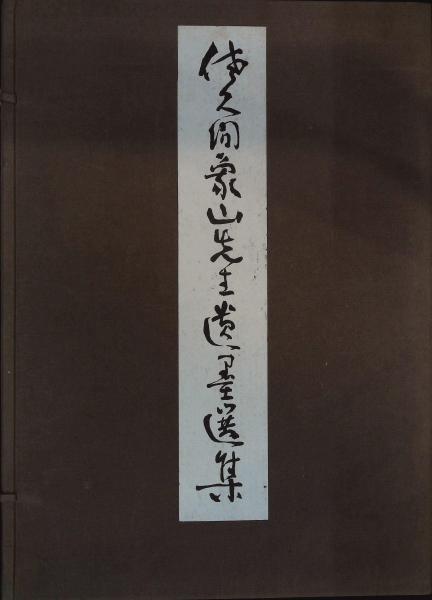 佐久間象山先生遺墨選集